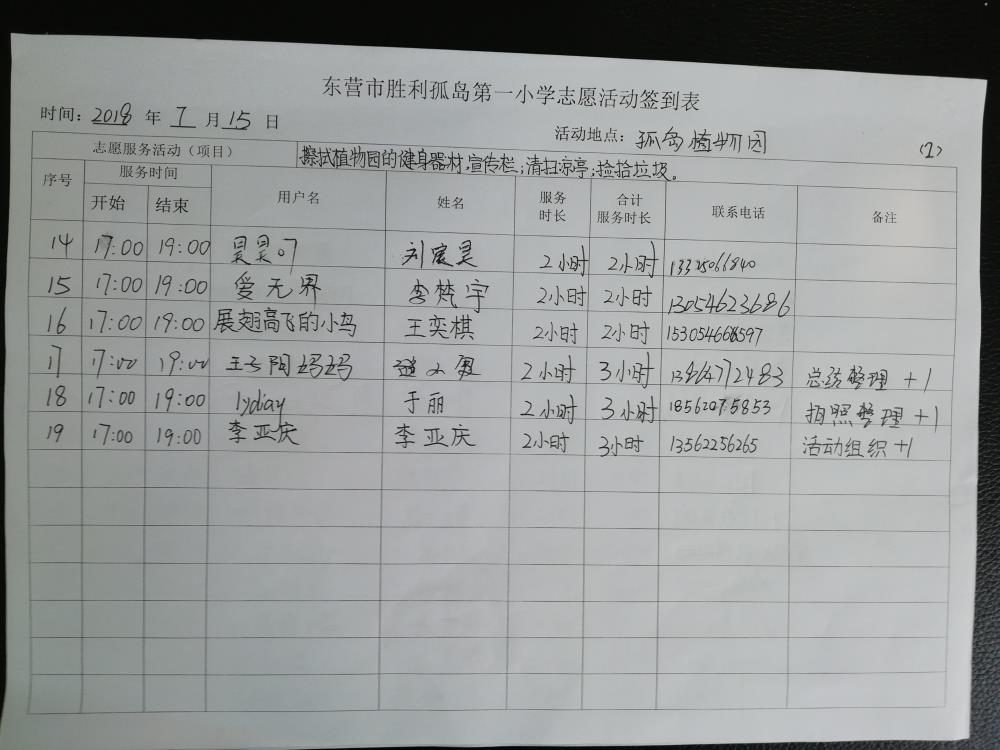 东营市胜利孤岛第一小学志愿活动签到表
时间：2018 年 7 月 15 日 活动地点：孤岛植物园 (2)
志愿服务活动（项目） 擦拭植物园的健身器材,宣传栏;清扫凉亭;捡拾垃圾。
序号 服务时间 用户名 姓名 服务时长 合计服务时长 联系电话 备注
开始 结束
14 17:00 19:00 昊昊07 刘宸昊 2小时 2小时
15 17:00 19:00 爱无界 李梵宇 2小时 2小时 13054623686
16 17:00 19:00 展翅高飞的小鸟 王奕棋 2小时 2小时
17 17:00 19:00 王子阳妈妈 2小时 3小时 13864712483 总结整理 +1
18 17:00 19:00 lydiay 于丽 2小时 3小时 18562075853 拍照整理 +1
19 17:00 19:00 李亚庆 李亚庆 2小时 3小时 13562256265 活动组织 +1